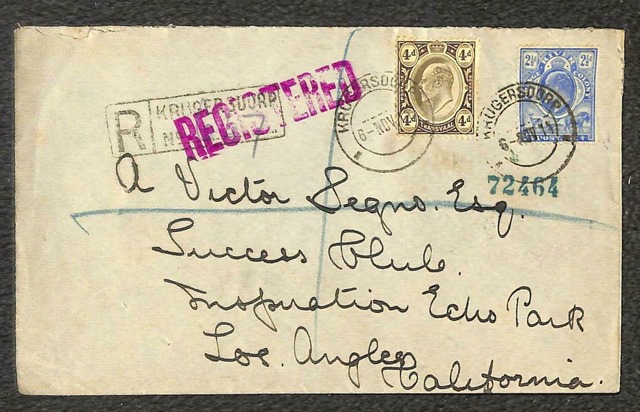 4d 4d
4d 4d
TRANSVAAL
2½ 2½
R
KRUGERSDORP
REGISTERED
KRUGERSDORP
6-NOV
KRUGERSDORP
6 NOV 11
72464
7
A Victor Segno. Esq.
Success Club.
Inspiration Echo Park
Los. Angles
California.